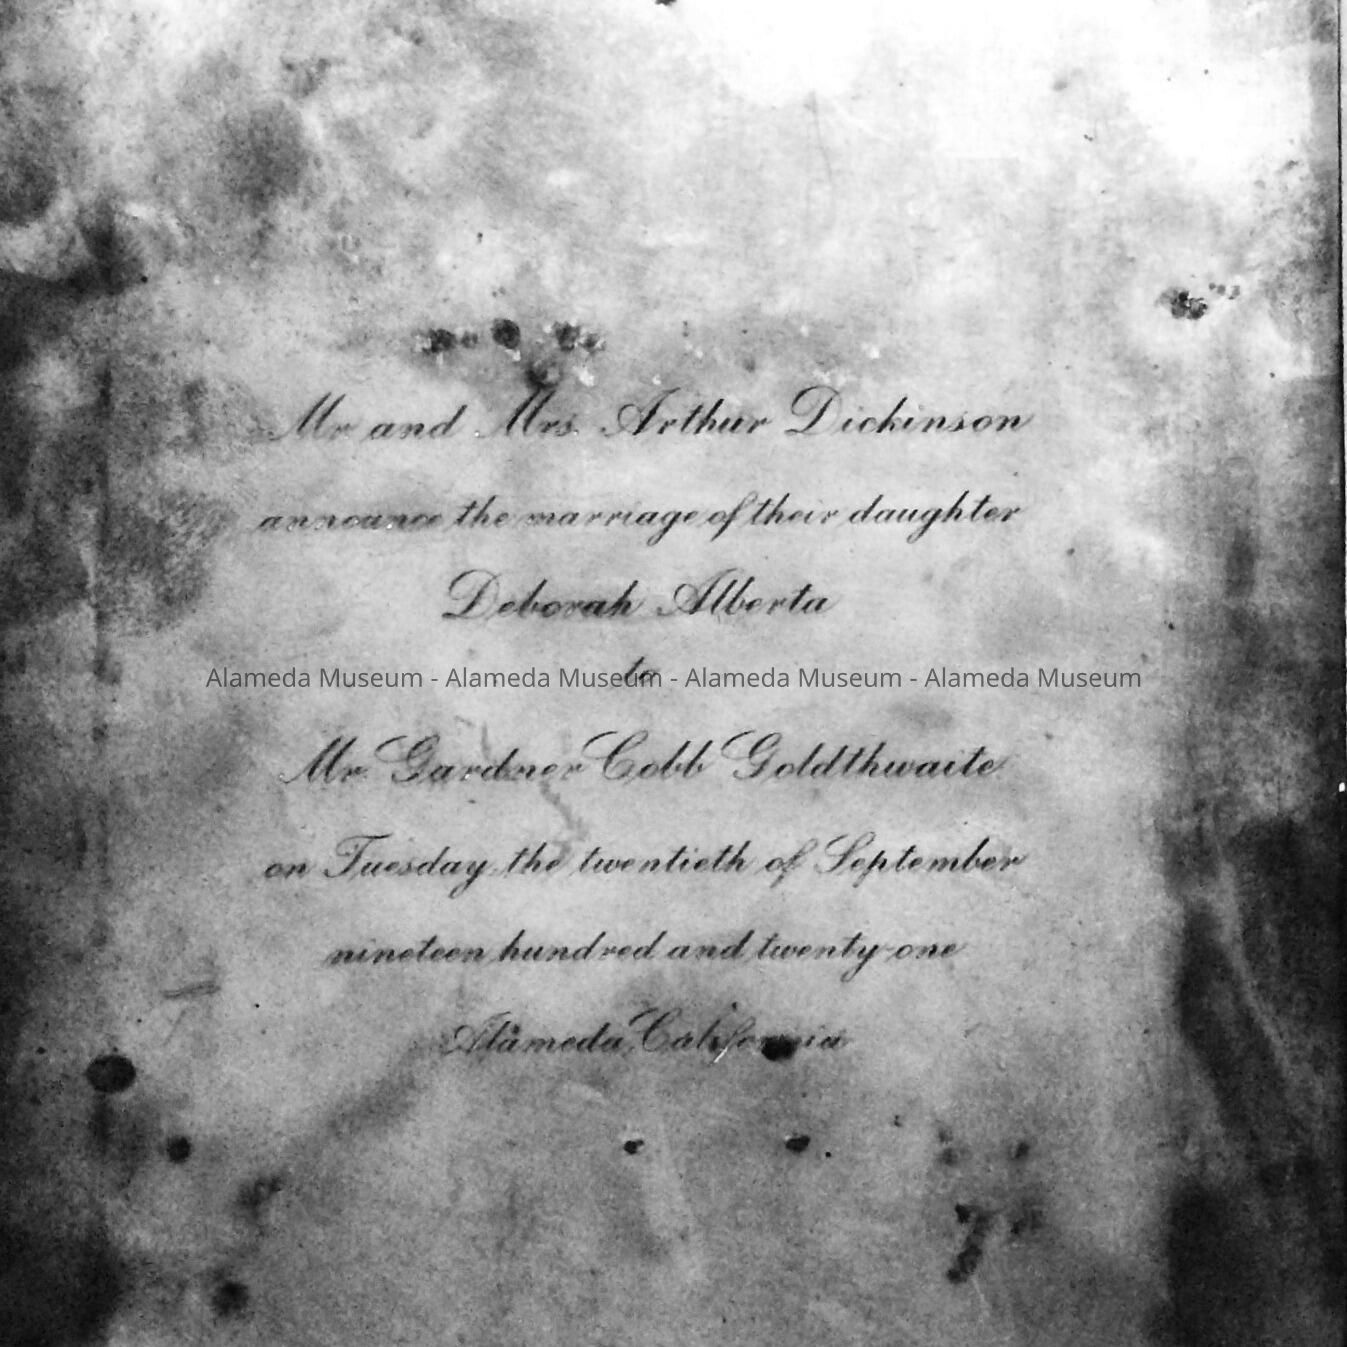 Mr. and Mrs. Arthur Dickinson
announce the marriage of their daughter
Deborah Alberta
to
Alameda Museum - Alameda Museum - Alameda Museum - Alameda Museum
Mr. Gardner Cobb Goldthwaite
on Tuesday, the twentieth of September
nineteen hundred and twenty-one
Alameda, California